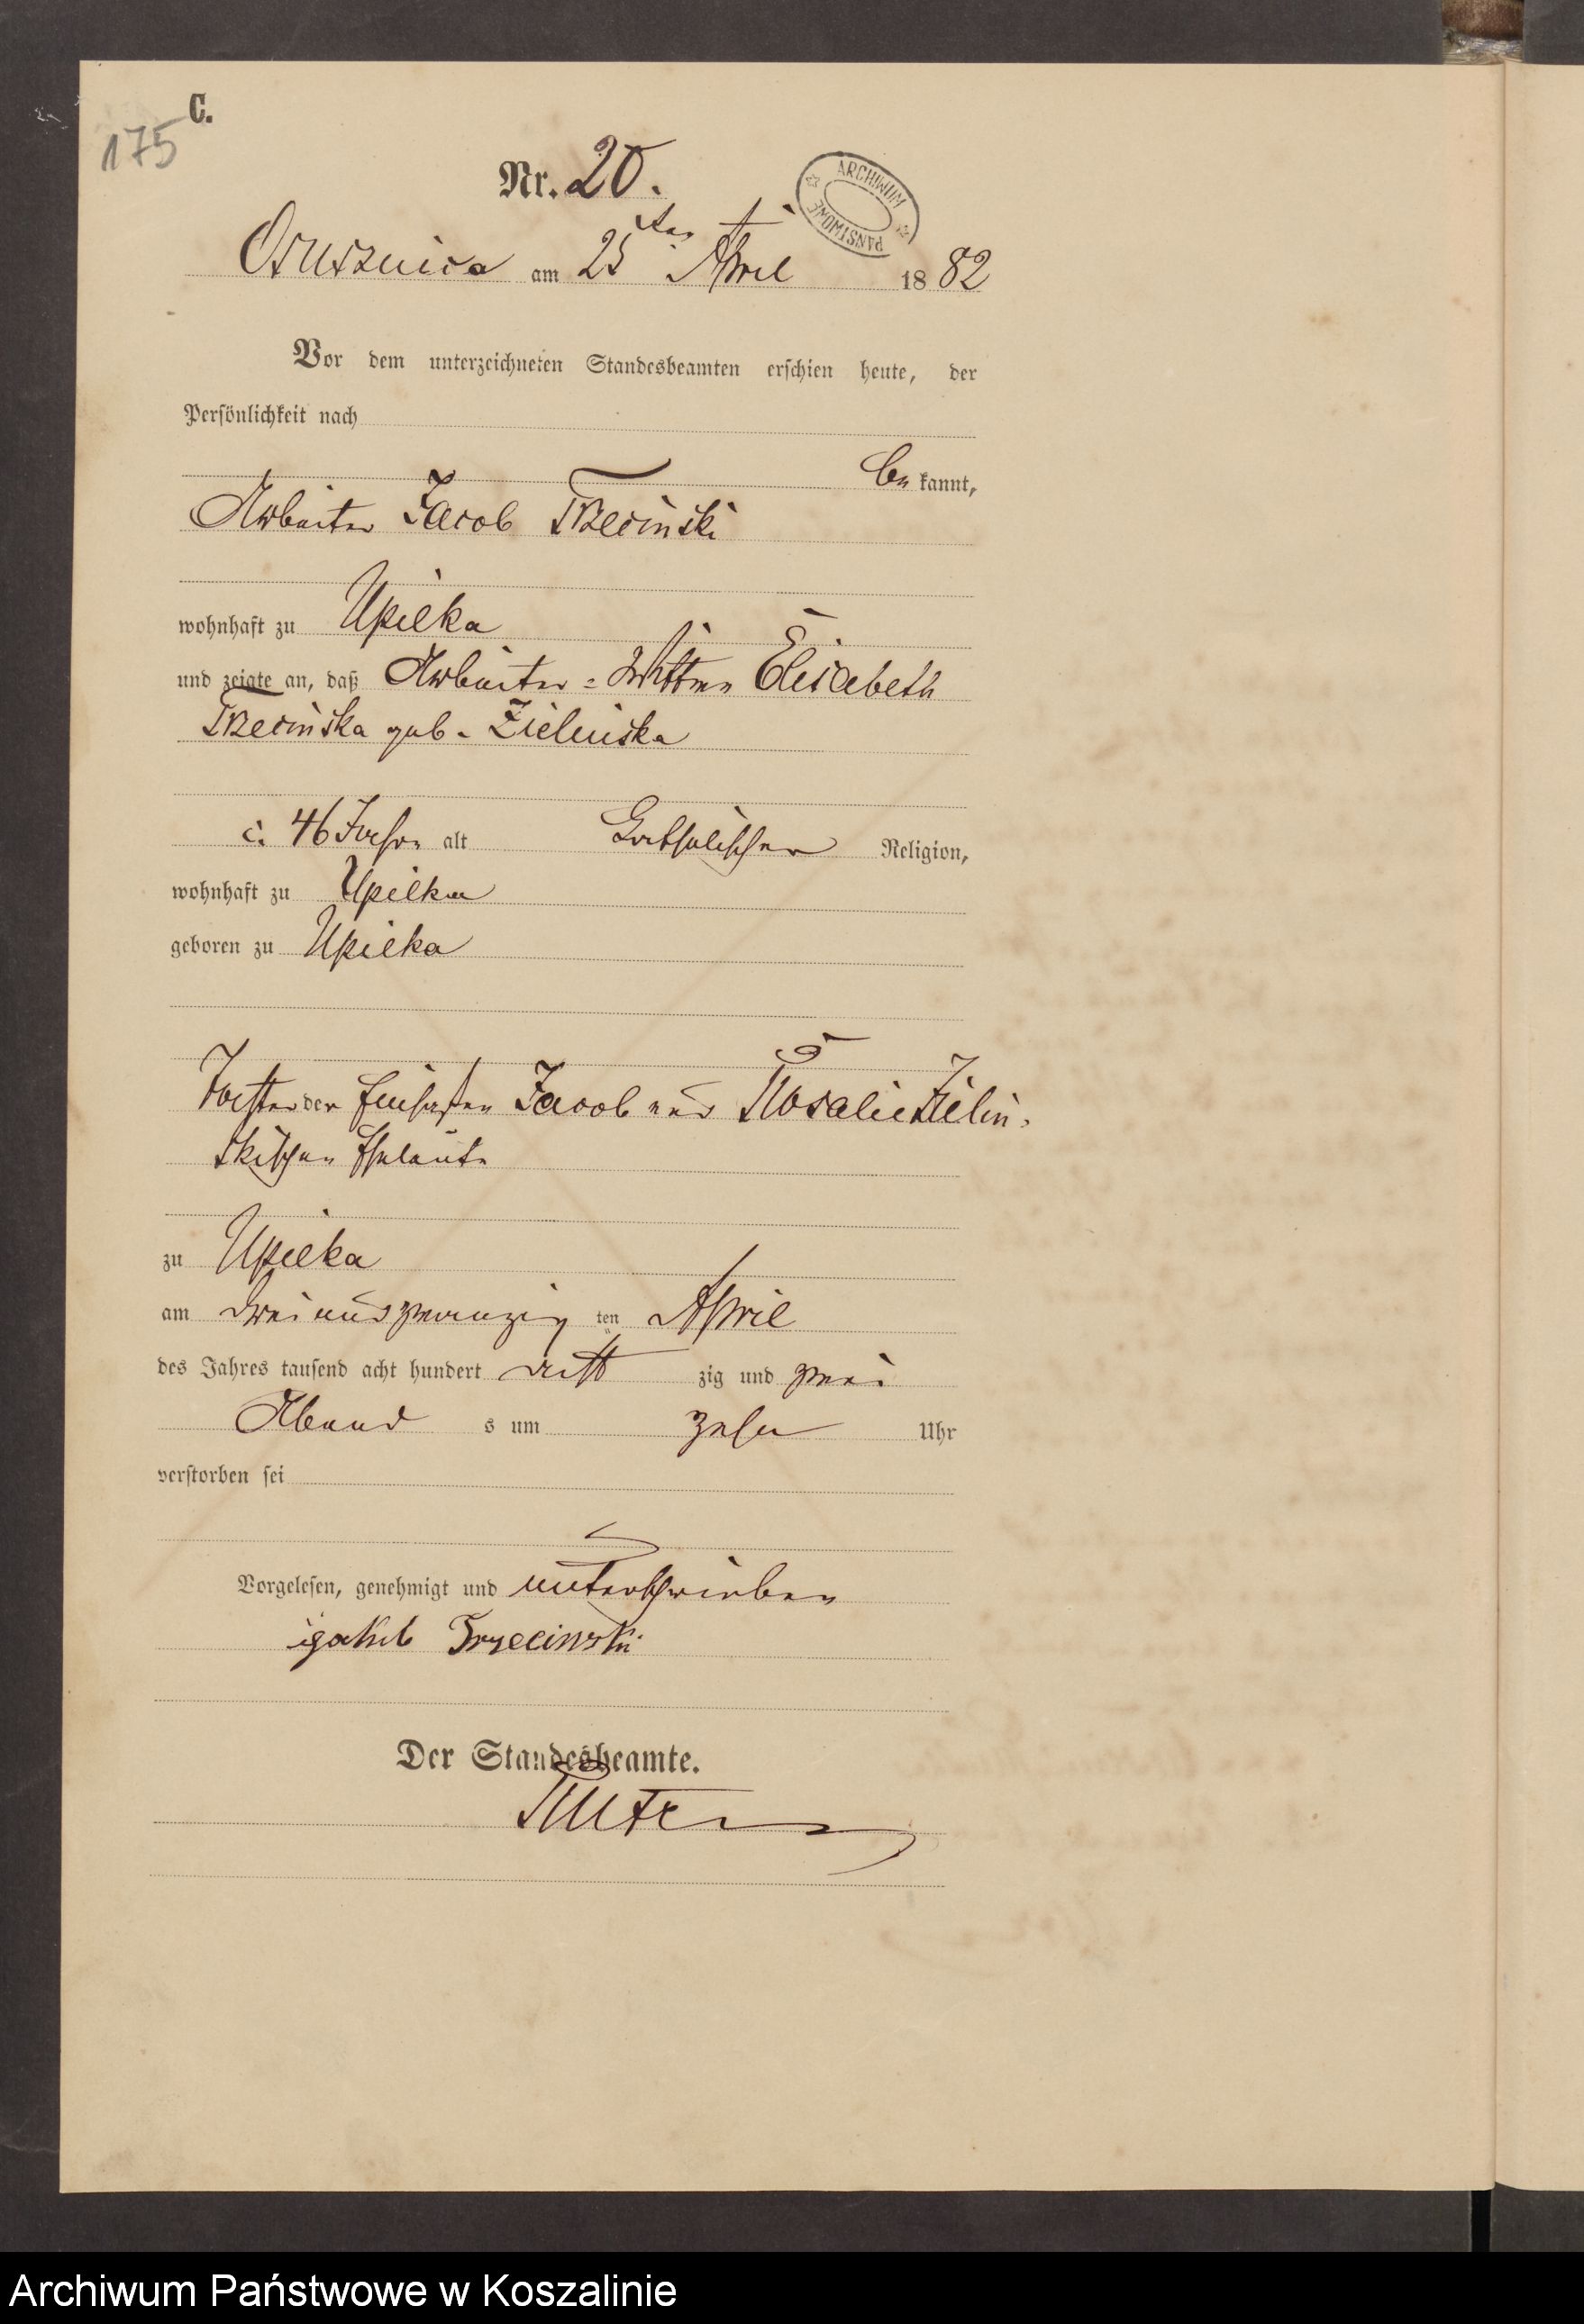 175
C.
Nr. 20.
ARCHIWUM PAŃSTWOWE
Osusznica am 25ten April 1882
Vor dem unterzeichneten Standesbeamten erschien heute, der
Persönlichkeit nach
bekannt,
Arbeiter Jacob Trzecinski
wohnhaft zu Upilka
und zeigte an, daß Arbeiter-Wittwe Elisabeth
Trzecinska geb. Zielinska
c. 46 Jahre alt Catholischer Religion,
wohnhaft zu Upilka
geboren zu Upilka
Tochter der Einsassen Jacob und Rosalie Zielin-
skischen Eheleute
zu Upilka
am dreiundzwanzigten April
des Jahres tausend acht hundert achtzig und zwei
Abends um zehn Uhr
verstorben sei
Vorgelesen, genehmigt und unterschrieben
jakub Trzecinski
Der Standesbeamte.
Archiwum Państwowe w Koszalinie